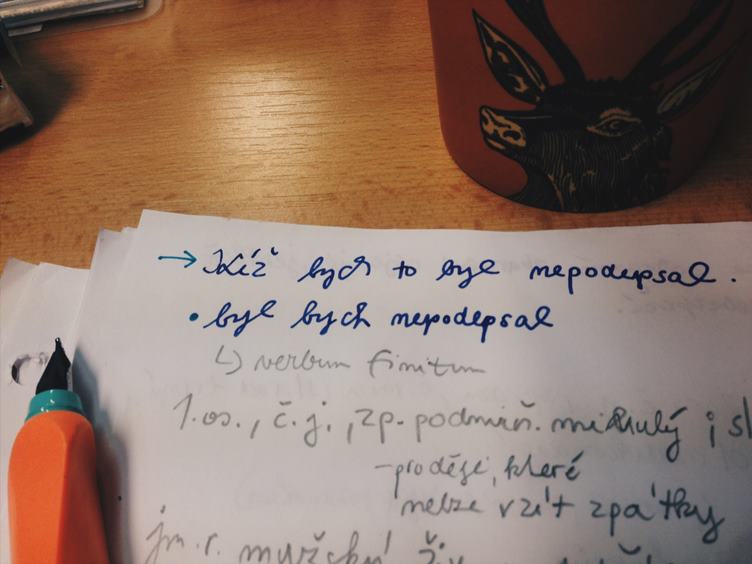 → Kéž bych to byl nepodepsal.
• byl bych nepodepsal
↳ verbum finitum
1. os., č. j., zp. podmiň. minulý i
- pro děje, které
nelze vzít zpátky
jm. r. mužský